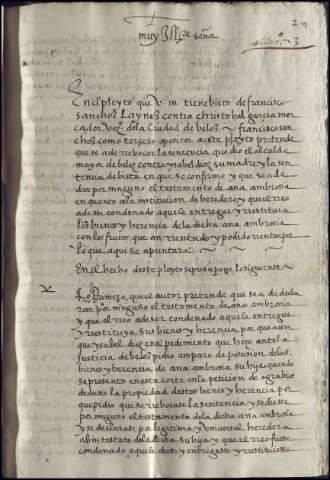 muy Ill.e señor
En el pleyto que V. m. tiene bisto de francisco
sanchez Laynez contra christobal garcia mer
cador vezo de la Ciudad de
francisco san
chez como tercero opositor a este pleyto pretende
que se a de rrebocar la sentencia que dio el alcalde
mayor de contra ysabel diez su madre y la sen
tencia de bista en que se confirmo y que se a de
dar por ninguno el testamento de ana ambrosia
en quanto a la institucion de heredero y que el reo
a de ser condenado a que le entregue y rrestituia
los bienes y herencia de la dicha ana ambrosia
con los frutos que an rrentado y podido rrentar por
lo que aqui se apuntara
En el hecho deste pleyto se presupone lo siguiente
Lo Primero, que el autor pretende que se a de decla
rar por ninguno el testamento de ana ambrosia
y que el rreo a de ser condenado a que le entregue
y rrestituya sus bienes y herencia, por que aun
que ysabel diez en el pedimento que hizo ante la
justicia de pidio amparo de posesion de los
bienes y herencia de ana ambrosia su hija quando
se presento en esta corte en la peticion de agrabios
deduxo la propiedad destos bienes y herencia por
que pidio que se rebocase la sentencia y se diesse
por ninguno el testamento de la dicha ana ambrosia
y se declarase por legitima y Universal heredera
abintestato de la dicha su hija y que el reo fuesse
condenado a que le diese y entregasse y rrestituiesse